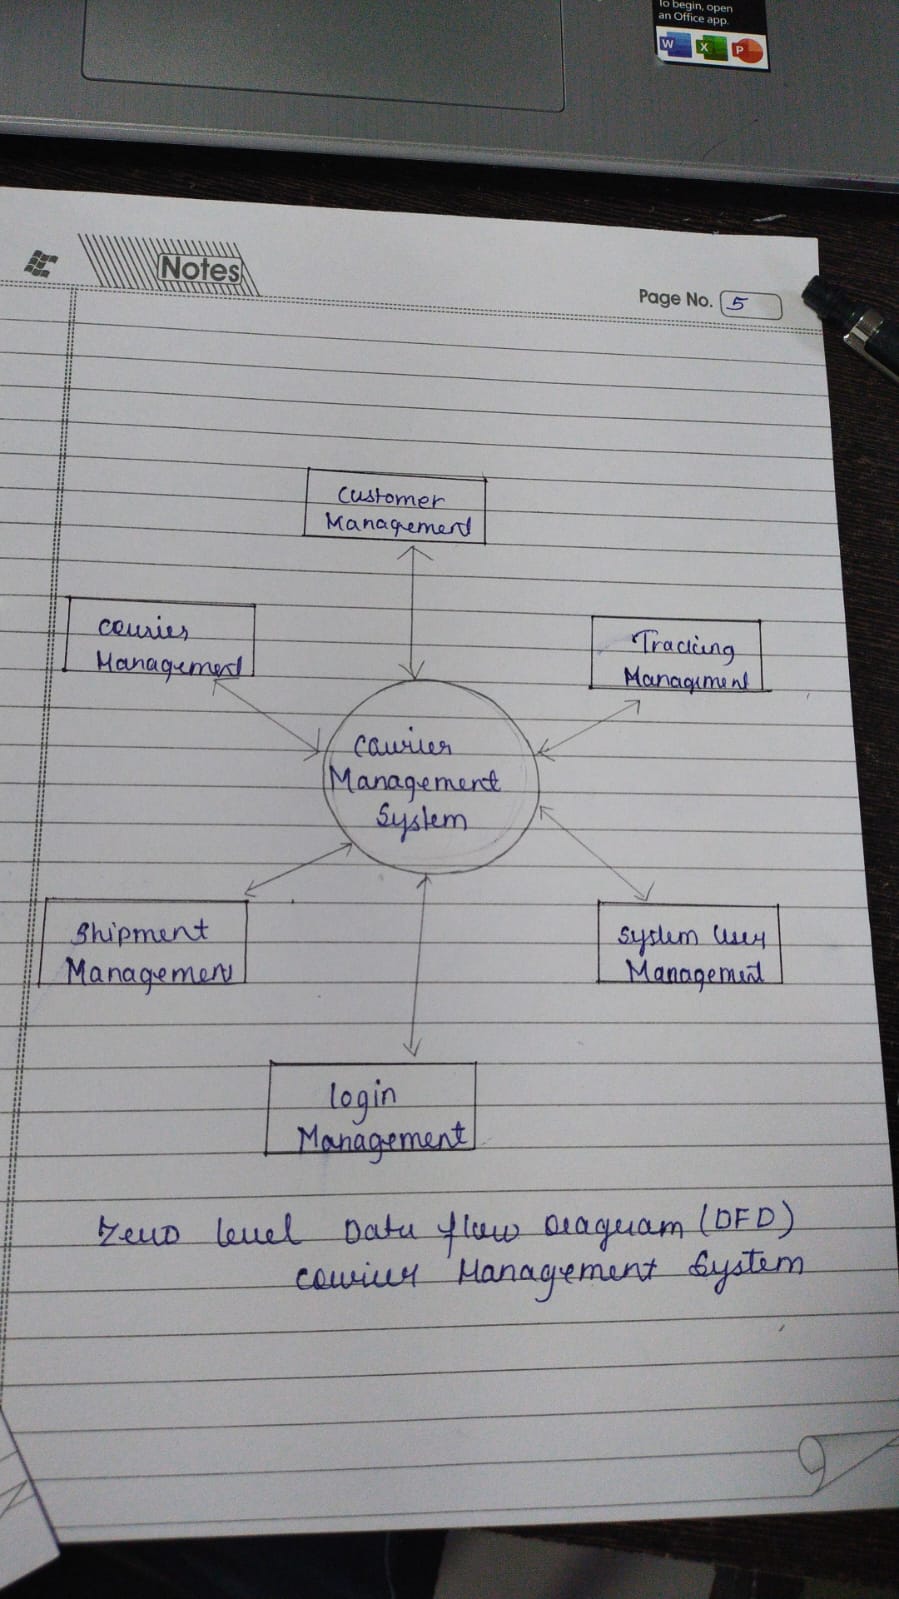 To begin, open
an Office app.
W X P
Notes
Page No. 5
Customer
Management
Courier
Management
Tracking
Management
Courier
Management
System
Shipment
Management
System User
Management
Login
Management
Zero level Data flow Diagram (DFD)
Courier Management System